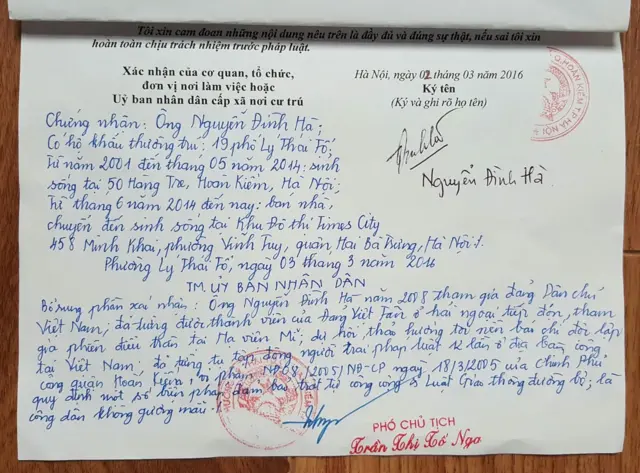 Tôi xin cam đoan những nội dung nêu trên là đầy đủ và đúng sự thật, nếu sai tôi xin
hoàn toàn chịu trách nhiệm trước pháp luật.
Xác nhận của cơ quan, tổ chức,
đơn vị nơi làm việc hoặc
Uỷ ban nhân dân cấp xã nơi cư trú
Hà Nội, ngày 02 tháng 03 năm 2016
Ký tên
(Ký và ghi rõ họ tên)
Nguyễn Đình Hà
Q. HOÀN KIẾM TP HÀ NỘI
Chứng nhận: Ông Nguyễn Đình Hà;
Có hộ khẩu thường trú: 19 phố Lý Thái Tổ;
Từ năm 2001 đến tháng 05 năm 2014: sinh
sống tại 50 Hàng Tre, Hoàn Kiếm, Hà Nội;
Từ tháng 6 năm 2014 đến nay: bán nhà,
chuyển đến sinh sống tại Khu Đô thị Times City
458 Minh Khai, phường Vĩnh Tuy, quận Hai Bà Trưng, Hà Nội.
Phường Lý Thái Tổ, ngày 03 tháng 3 năm 2016
TM. ỦY BAN NHÂN DÂN
Bổ sung phần xác nhận: Ông Nguyễn Đình Hà năm 2008 tham gia đảng Dân chủ
Việt Nam; đã từng được thành viên của Đảng Việt Tân ở hải ngoại tiếp đón, tham
gia phiên điều trần tại Hạ viện Mĩ; dự hội thảo hướng tới nền báo chí độc lập
tại Việt Nam; đã từng tụ tập đông người trái pháp luật 12 lần ở địa bàn công
cộng quận Hoàn Kiếm; vi phạm NĐ 08/2005/NĐ-CP ngày 18/3/2005 của Chính Phủ
quy định một số biện pháp đảm bảo trật tự công cộng và Luật Giao thông đường bộ; là
công dân không gương mẫu.
PHÓ CHỦ TỊCH
Trần Thị Tố Nga